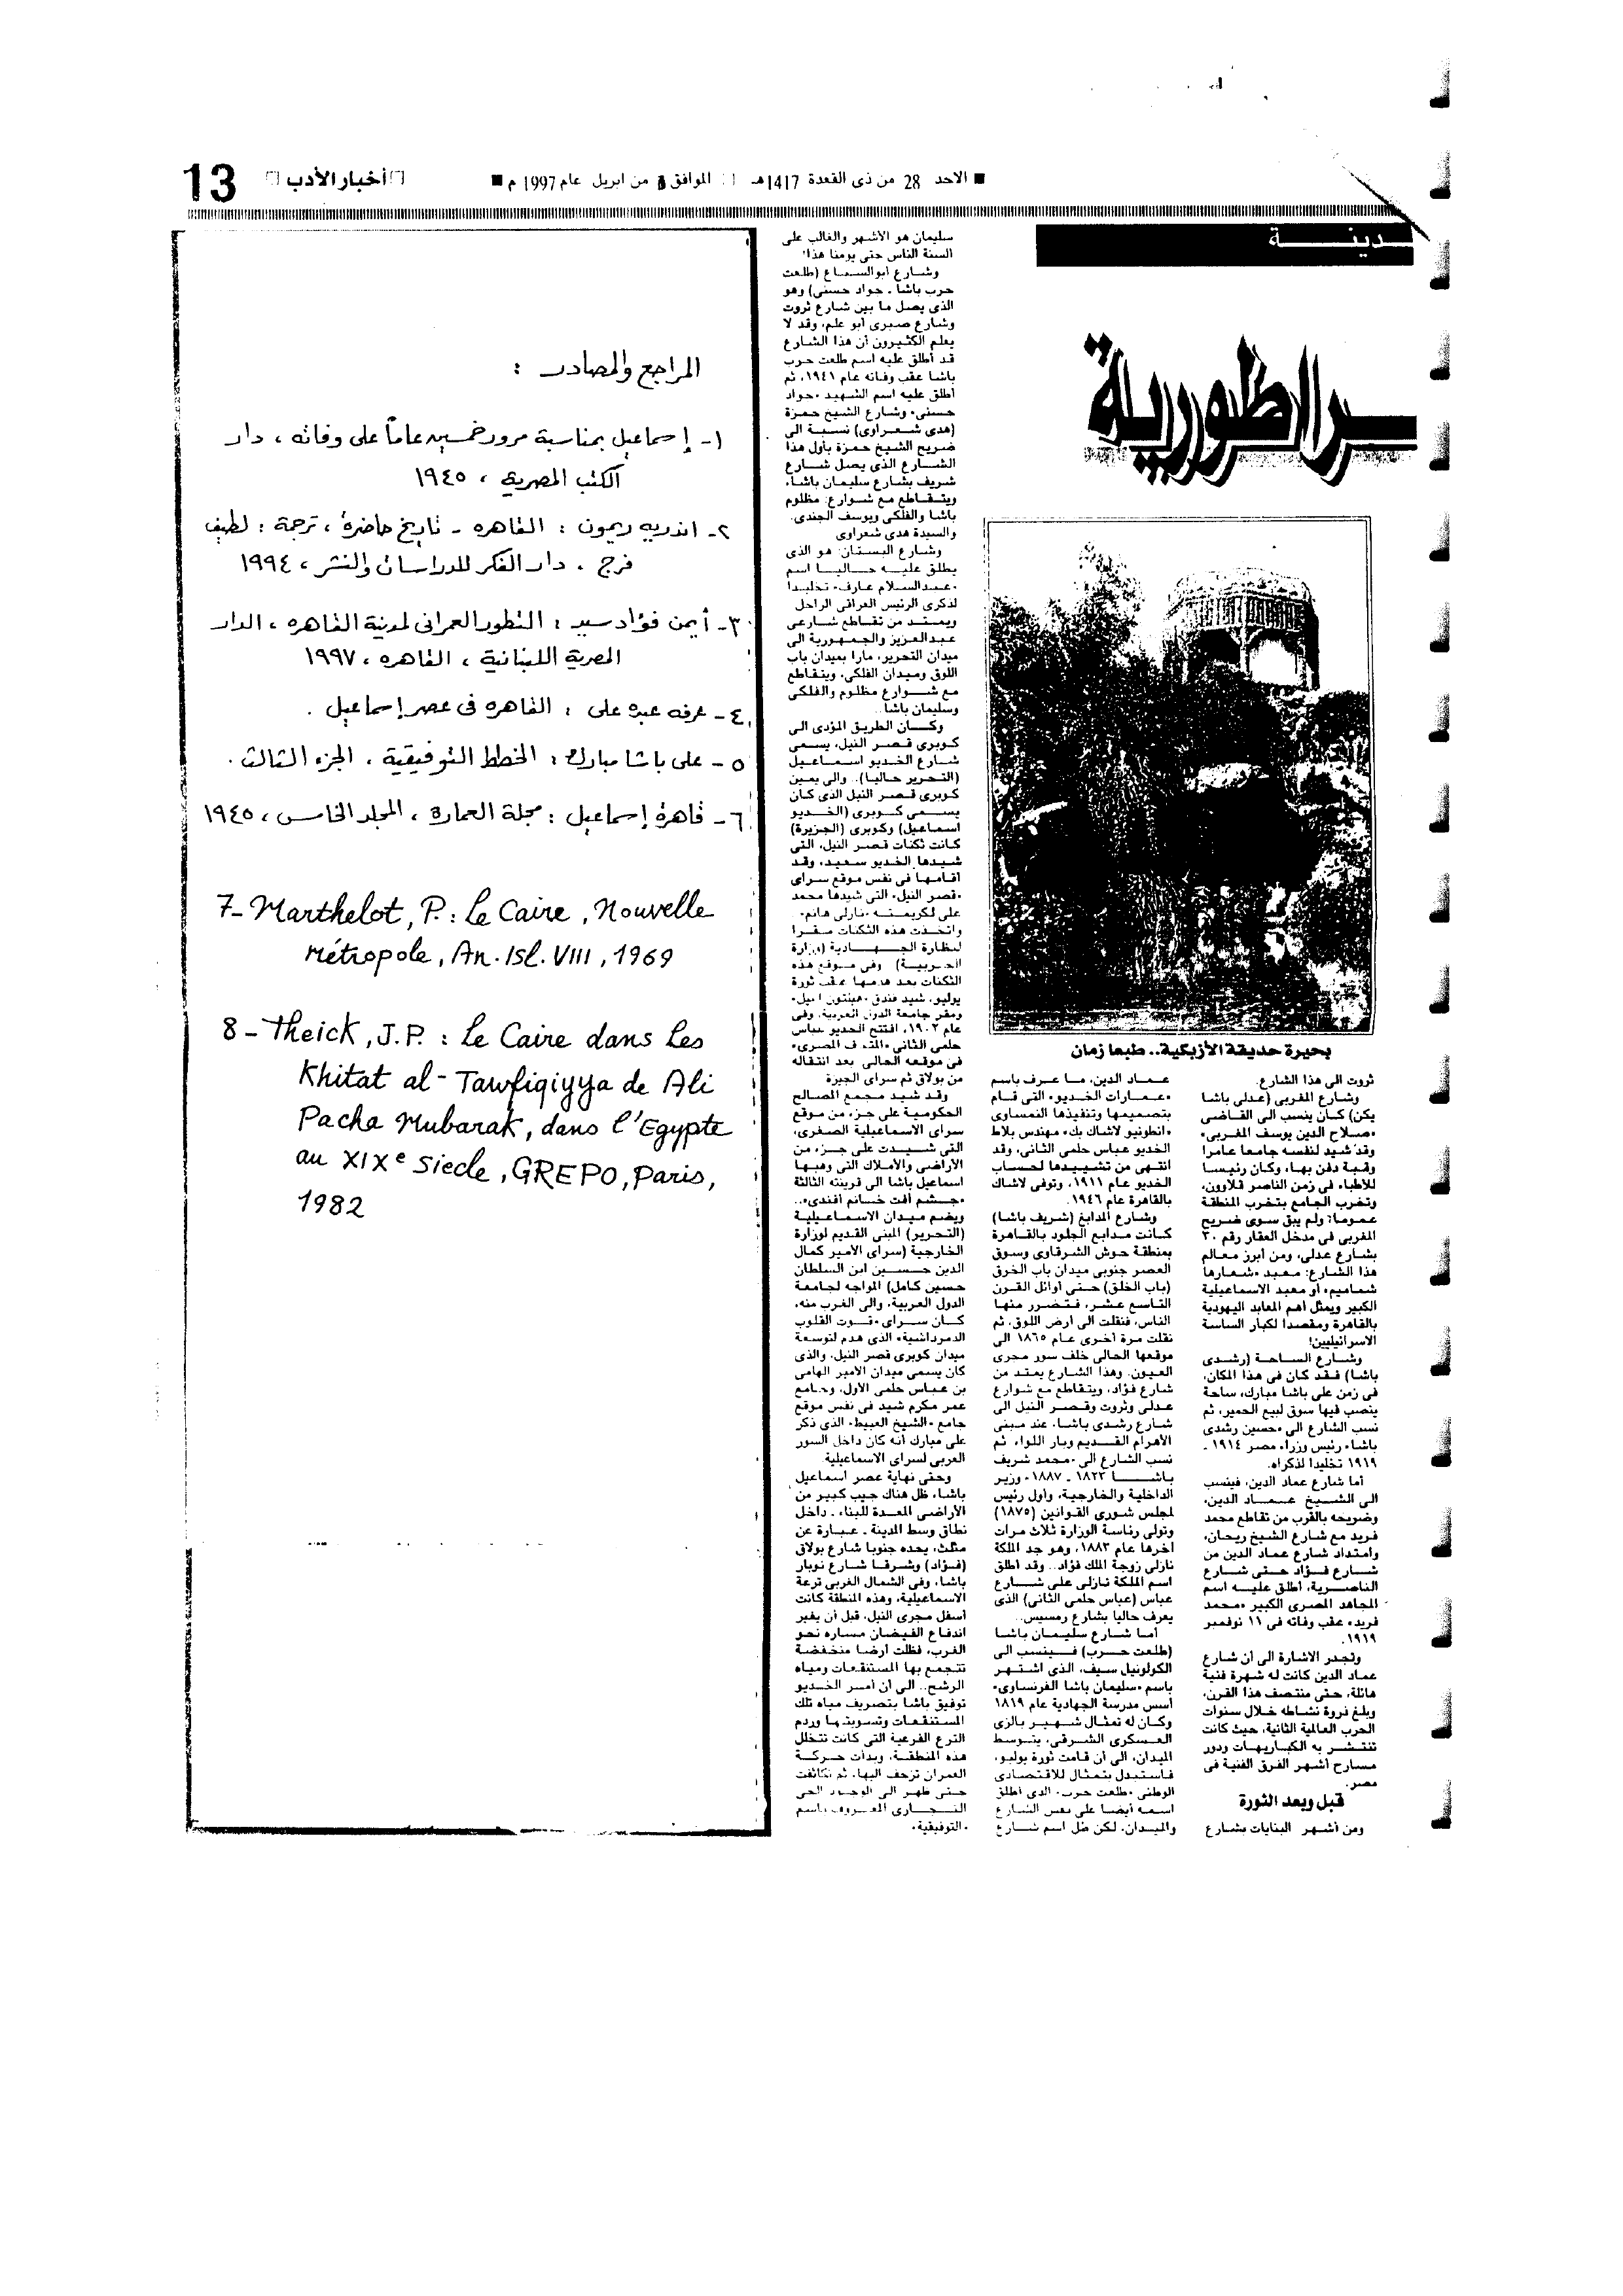 ■ الاحد 28 من ذى القعدة 1417هـ الموافق 6 من ابريل عام 1997 م ■
أخبار الأدب
13
ـدينـــــــة
ـسراطورية
بحيرة حديقة الأزبكية.. طبعا زمان
ثروت الى هذا الشارع.
وشارع المغربى (عدلى باشا
يكن) كان ينسب الى القاضى
«صلاح الدين يوسف المغربى»
وقد شيد لنفسه جامعا عامرا
وقبة دفن بها، وكان رئيسا
للأطباء فى زمن الناصر قلاوون،
وتخرب الجامع بتخرب المنطقة
عموما: ولم يبق سوى ضريح
المغربى فى مدخل العقار رقم ٣٠
بشارع عدلى، ومن أبرز معالم
هذا الشارع: معبد «شعارها
شماميم» أو معبد الاسماعيلية
الكبير ويمثل أهم المعابد اليهودية
بالقاهرة ومقصدا لكبار الساسة
الاسرائيليين!
وشارع الساحة (رشدى
باشا) فقد كان فى هذا المكان،
فى زمن على باشا مبارك، ساحة
ينصب فيها سوق لبيع الحمير، ثم
نسب الشارع الى «حسين رشدى
باشا» رئيس وزراء مصر ١٩١٤ ـ
١٩١٩ تخليدا لذكراه.
أما شارع عماد الدين، فينسب
الى الشيخ عماد الدين،
وضريحه بالقرب من تقاطع محمد
فريد مع شارع الشيخ ريحان،
وامتداد شارع عماد الدين من
شارع فؤاد حتى شارع
الناصرية، أطلق عليه اسم
المجاهد المصرى الكبير «محمد
فريد» عقب وفاته فى ١١ نوفمبر
١٩١٩.
وتجدر الاشارة الى أن شارع
عماد الدين كانت له شهرة فنية
هائلة، حتى منتصف هذا القرن،
وبلغ ذروة نشاطه خلال سنوات
الحرب العالمية الثانية، حيث كانت
تنتشر به الكباريهات ودور
مسارح أشهر الفرق الفنية فى
مصر.
قبل وبعد الثورة
ومن أشهر البنايات بشارع
عماد الدين، ما عرف باسم
«عمارات الخديو» التى قام
بتصميمها وتنفيذها النمساوى
«انطونيو لاشاك بك» مهندس بلاط
الخديو عباس حلمى الثانى، وقد
انتهى من تشييدها لحساب
الخديو عام ١٩١١، وتوفى لاشاك
بالقاهرة عام ١٩٤٦.
وشارع المدابغ (شريف باشا)
كانت مدابع الجلود بالقاهرة
بمنطقة حوش الشرقاوى وسوق
العصر جنوبى ميدان باب الخرق
(باب الخلق) حتى أوائل القرن
التاسع عشر، فتضرر منها
الناس، فنقلت الى أرض اللوق، ثم
نقلت مرة أخرى عام ١٨٦٥ الى
موقعها الحالى خلف سور مجرى
العيون. وهذا الشارع يمتد من
شارع فؤاد، ويتقاطع مع شوارع
عدلى وثروت وقصر النيل الى
شارع رشدى باشا، عند مبنى
الأهرام القديم وبار اللواء ثم
نسب الشارع الى «محمد شريف
باشا ١٨٢٣ ـ ١٨٨٧» وزير
الداخلية والخارجية، وأول رئيس
لمجلس شورى القوانين (١٨٧٥)
وتولى رئاسة الوزارة ثلاث مرات
آخرها عام ١٨٨٣، وهو جد الملكة
نازلى زوجة الملك فؤاد.. وقد أطلق
اسم الملكة نازلى على شارع
عباس (عباس حلمى الثانى) الذى
يعرف حاليا بشارع رمسيس..
أما شارع سليمان باشا
(طلعت حرب) فينسب الى
الكولونيل سيف، الذى اشتهر
باسم «سليمان باشا الفرنساوى»
أسس مدرسة الجهادية عام ١٨١٩
وكان له تمثال شهير بالزى
العسكرى الشرقى، يتوسط
الميدان، الى أن قامت ثورة يوليو،
فاستبدل بتمثال للاقتصادى
الوطنى «طلعت حرب» الذى أطلق
اسمه أيضا على نفس الشارع
والميدان، لكن ظل اسم شارع
سليمان هو الأشهر والغالب على
السنة الناس حتى يومنا هذا!
وشارع أبو السباع (طلعت
حرب باشا ـ جواد حسنى) وهو
الذى يصل ما بين شارع ثروت
وشارع صبرى أبو علم، وقد لا
يعلم الكثيرون أن هذا الشارع
قد أطلق عليه اسم طلعت حرب
باشا عقب وفاته عام ١٩٤١، ثم
أطلق عليه اسم الشهيد «جواد
حسنى» وشارع الشيخ حمزة
(هدى شعراوى) نسبة الى
ضريح الشيخ حمزة بأول هذا
الشارع الذى يصل شارع
شريف بشارع سليمان باشا،
ويتقاطع مع شوارع: مظلوم
باشا والفلكى ويوسف الجندى.
والسيدة هدى شعراوى
وشارع البستان: هو الذى
يطلق عليه حاليا اسم
«عبدالسلام عارف» تخليدا
لذكرى الرئيس العراقى الراحل
ويمتد من تقاطع شارعى
عبدالعزيز والجمهورية الى
ميدان التحرير، مارا بميدان باب
اللوق وميدان الفلكى، ويتقاطع
مع شوارع مظلوم والفلكى
وسليمان باشا..
وكان الطريق المؤدى الى
كوبرى قصر النيل، يسمى
شارع الخديو اسماعيل
(التحرير حاليا).. والى يمين
كوبرى قصر النيل الذى كان
يسمى كوبرى (الخديو
اسماعيل) وكوبرى (الجزيرة)
كانت ثكنات قصر النيل، التى
شيدها الخديو سعيد، وقد
أقامها فى نفس موقع سراى
«قصر النيل» التى شيدها محمد
على لكريمته «نازلى هانم»
واتخذت هذه الثكنات مقرا
لنظارة الجهادية (وزارة
الحربية) وفى موقع هذه
الثكنات بعد هدمها عقب ثورة
يوليو، شيد فندق «هيلتون النيل»
ومقر جامعة الدول العربية، وفى
عام ١٩٠٢، افتتح الخديو عباس
حلمى الثانى «المتحف المصرى»
فى موقعه الحالى بعد انتقاله
من بولاق ثم سراى الجيزة
وقد شيد مجمع المصالح
الحكومية على جزء من موقع
سراى الاسماعيلية الصغرى،
التى شيدت على جزء من
الأراضى والأملاك التى وهبها
اسماعيل باشا الى قرينته الثالثة
«جشم أفت خانم أفندى»..
ويضم ميدان الاسماعيلية
(التحرير) المبنى القديم لوزارة
الخارجية (سراى الامير كمال
الدين حسين ابن السلطان
حسين كامل) المواجه لجامعة
الدول العربية، والى الغرب منه،
كان سراى «قوت القلوب
الدمرداشية» الذى هدم لتوسعة
ميدان كوبرى قصر النيل، والذى
كان يسمى ميدان الأمير الهامى
بن عباس حلمى الأول، وجامع
عمر مكرم شيد فى نفس موقع
جامع «الشيخ العبيط» الذى ذكر
على مبارك أنه كان داخل السور
الغربى لسراى الاسماعيلية.
وحتى نهاية عصر اسماعيل
باشا، ظل هناك جيب كبير من
الأراضى المعدة للبناء ـ داخل
نطاق وسط المدينة ـ عبارة عن
مثلث، يحده جنوبا شارع بولاق
(فؤاد) وشرقا شارع نوبار
باشا، وفى الشمال الغربى ترعة
الاسماعيلية، وهذه المنطقة كانت
أسفل مجرى النيل، قبل أن يغير
اندفاع الفيضان مساره نحو
الغرب، فظلت أرضا منخفضة
تتجمع بها المستنقعات ومياه
الرشح.. الى أن أمر الخديو
توفيق باشا بتصريف مياه تلك
المستنقعات وتسويتها وردم
الترع الفرعية التى كانت تتخلل
هذه المنطقة، وبدأت حركة
العمران تزحف اليها، ثم تكاثفت
حتى ظهر الى الوجود الحى
التجارى المعروف باسم
«التوفيقية».
المراجع والمصادر :
١- إسماعيل بمناسبة مرور خمسين عاماً على وفاته ، دار
الكتب المصرية ، ١٩٤٥
٢- اندريه ريمون : القاهره - تاريخ حاضرة ، ترجمة : لطيف
فرج ، دار الفكر للدراسات والنشر ، ١٩٩٤
٣- أيمن فؤاد سيد : التطور العمرانى لمدينة القاهره ، الدار
المصرية اللبنانية ، القاهره ، ١٩٩٧
٤- عرفه عبده على : القاهره فى عصر إسماعيل .
٥- على باشا مبارك : الخطط التوفيقية ، الجزء الثالث .
٦- قاهرة إسماعيل : مجلة العمارة ، المجلد الخامس ، ١٩٤٥
7- Marthelot, P. : Le Caire, Nouvelle
Métropole, An. Isl. VIII, 1969
8- Theick, J.P. : Le Caire dans Les
Khitat al-Tawfiqiyya de Ali
Pacha Mubarak, dans l'Egypte
au XIXe siecle, GREPO, Paris,
1982